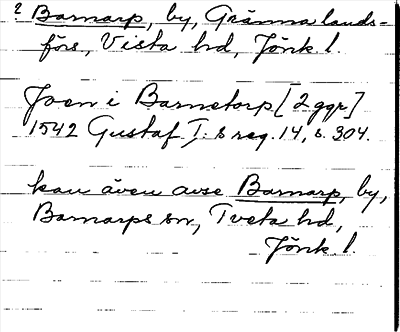 ? Barnarp, by, Gränna lands-
förs., Vista hd, Jönk l.
Joen i Barnetorp [2 ggr]
1542 Gustaf I:s reg. 14, s. 304.
kan även avse Barnarp, by,
Barnarps sn, Tveta hd,
Jönk l.